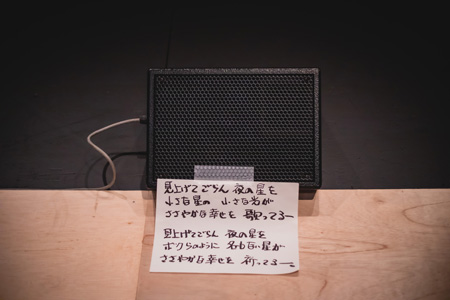 見上げてごらん 夜の星を
小さな星の 小さな光が
ささやかな幸せを 歌ってるー
見上げてごらん 夜の星を
ボクらのように 名もない星が
ささやかな幸せを 祈ってるー